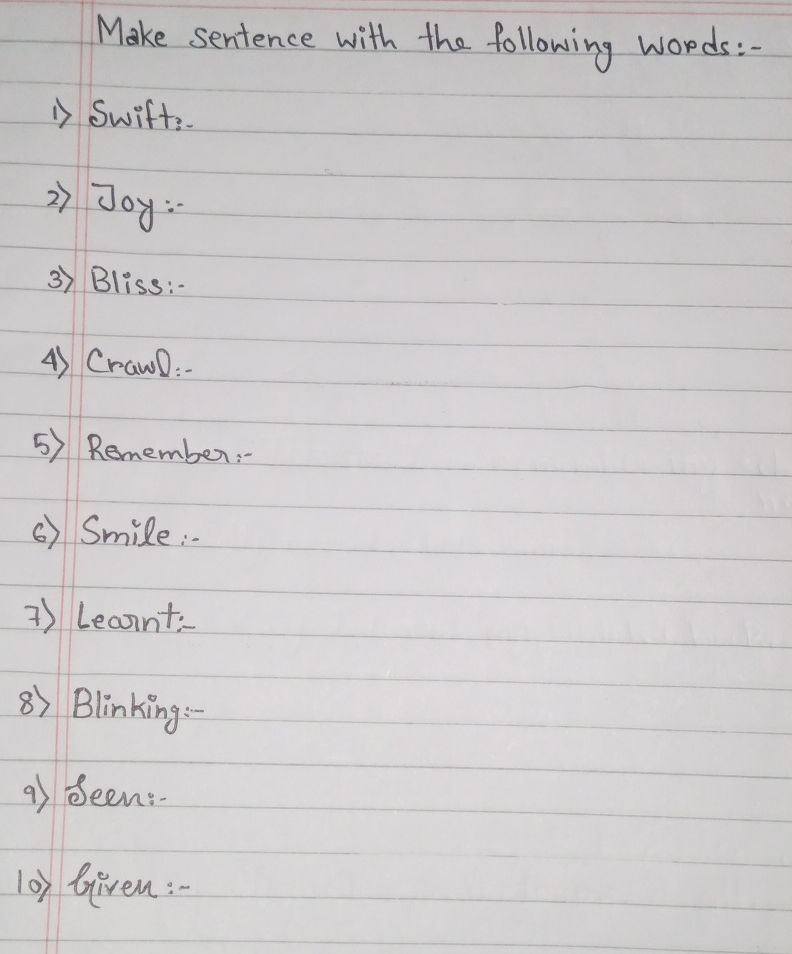 Make sentence with the following words:-
1) Swift:-
2) Joy:-
3) Bliss:-
4) Crawl:-
5) Remember:-
6) Smile:-
7) Learnt:-
8) Blinking:-
9) Seen:-
10) Given:-